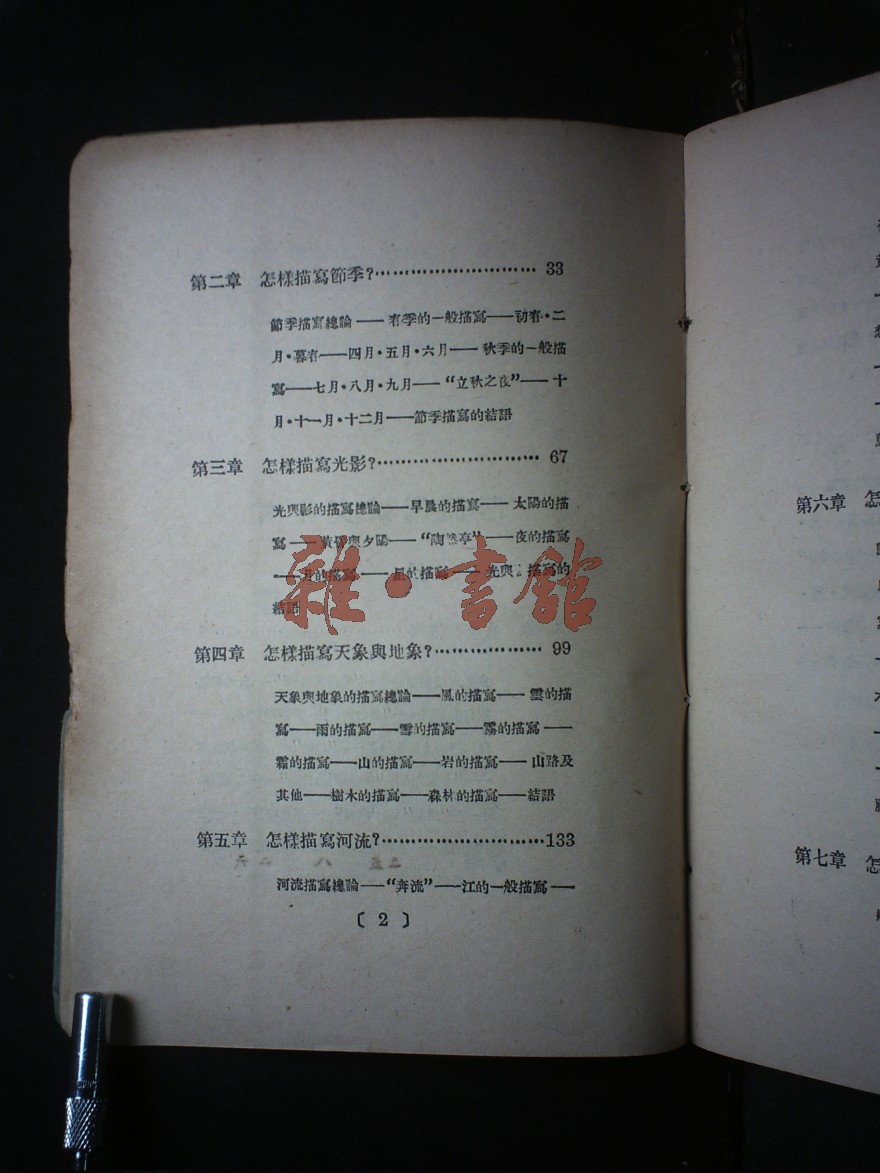 第二章 怎樣描寫節季?………………………… 33
節季描寫總論——春季的一般描寫——初春·二
月·暮春——四月·五月·六月——秋季的一般描
寫——七月·八月·九月——“立秋之夜”——十
月·十一月·十二月——節季描寫的結語
第三章 怎樣描寫光影?………………………… 67
光與影的描寫總論——早晨的描寫——太陽的描
寫——黃昏與夕陽——“陶然亭”——夜的描寫
——月的描寫——星的描寫——光與 描寫的
結語
雜·書館
第四章 怎樣描寫天象與地象?……………… 99
天象與地象的描寫總論——風的描寫——雲的描
寫——雨的描寫——雪的描寫——霧的描寫——
霜的描寫——山的描寫——岩的描寫——山路及
其他——樹木的描寫——森林的描寫——結語
第五章 怎樣描寫河流?………………………133
河流描寫總論——“奔流”——江的一般描寫——
〔 2 〕
第六章 怎
第七章 怎